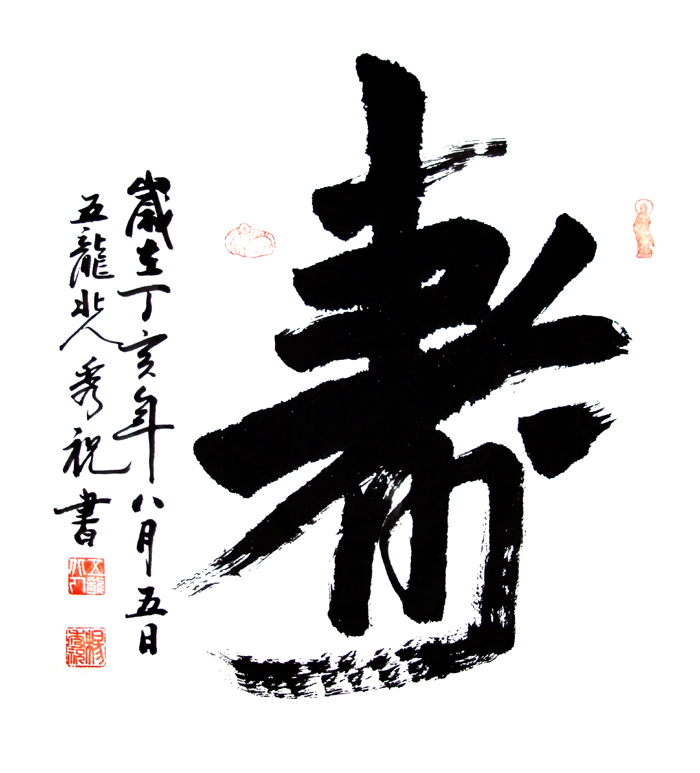 寿
歲在丁亥年八月五日
五龍山人秀祝書